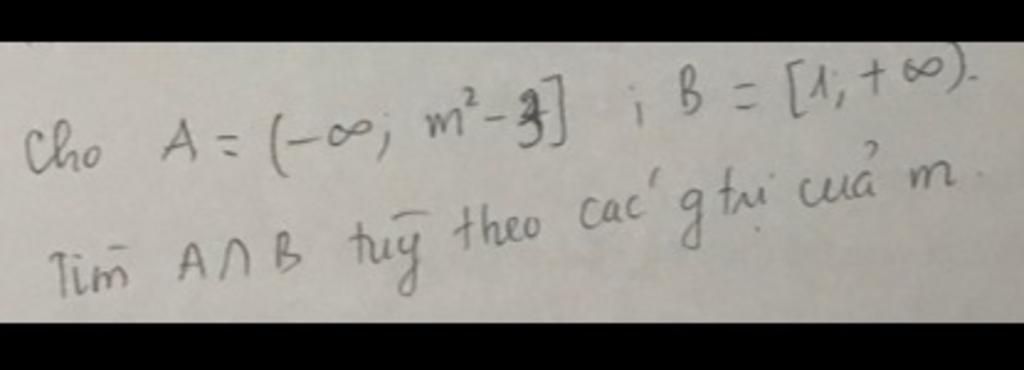 Cho A = (-∞; m²-3] ; B = [1; +∞).
Tìm A∩B tuỳ theo các gtrị của m.